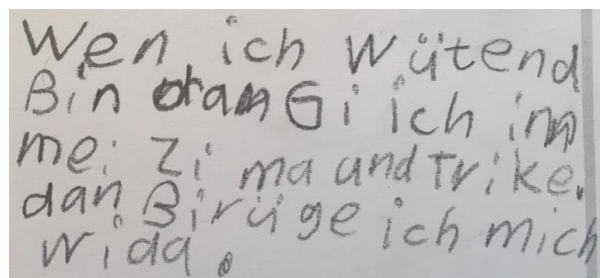 Wen ich Wütend
Bin dan Gi ich inn
mei Zi ma und Trike.
dan Birüge ich mich
wida.